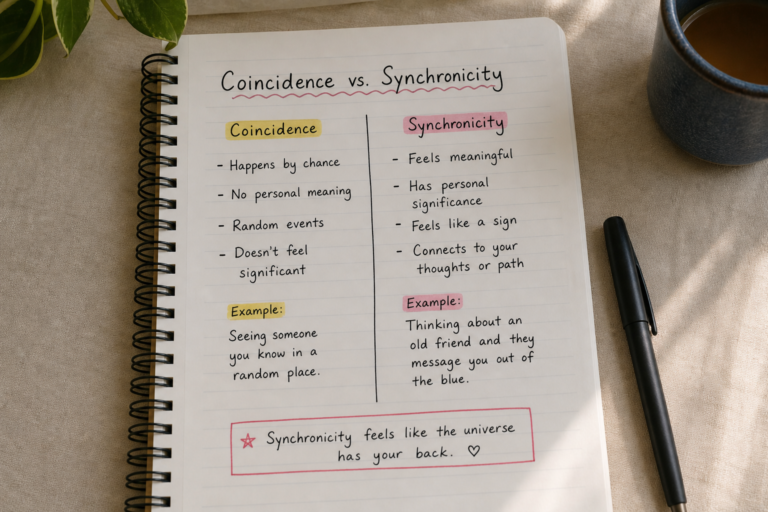 Coincidence vs. Synchronicity
Coincidence
- Happens by chance
- No personal meaning
- Random events
- Doesn't feel
significant
Example:
Seeing someone
you know in a
random place.
Synchronicity
- Feels meaningful
- Has personal
significance
- Feels like a sign
- Connects to your
thoughts or path
Example:
Thinking about an
old friend and they
message you out of
the blue.
☆ Synchronicity feels like the universe
has your back. ♡